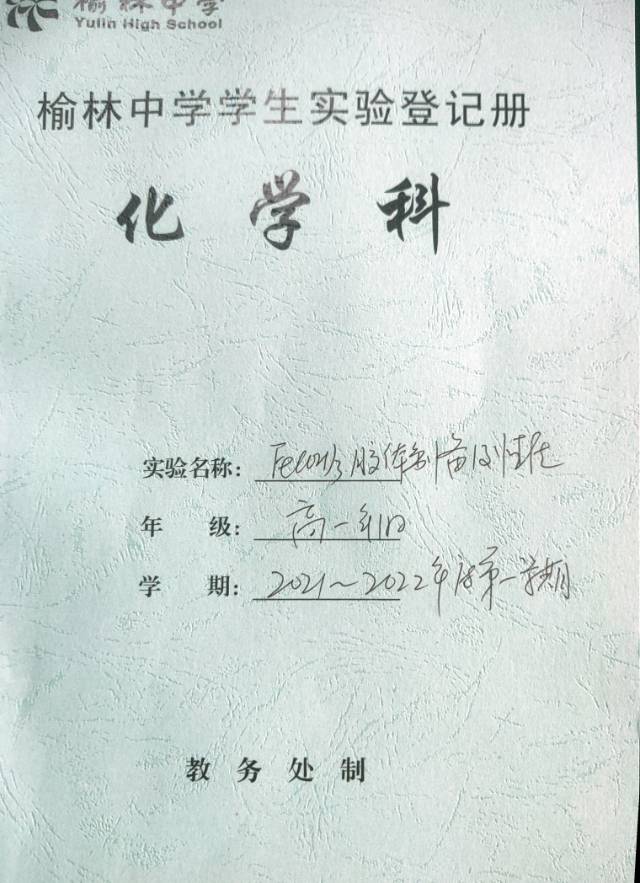 榆林中学
Yulin High School
榆林中学学生实验登记册
化 学 科
实验名称: Fe(OH)3胶体制备及性质
年 级: 高一年级
学 期: 2021~2022年度第一学期
教 务 处 制